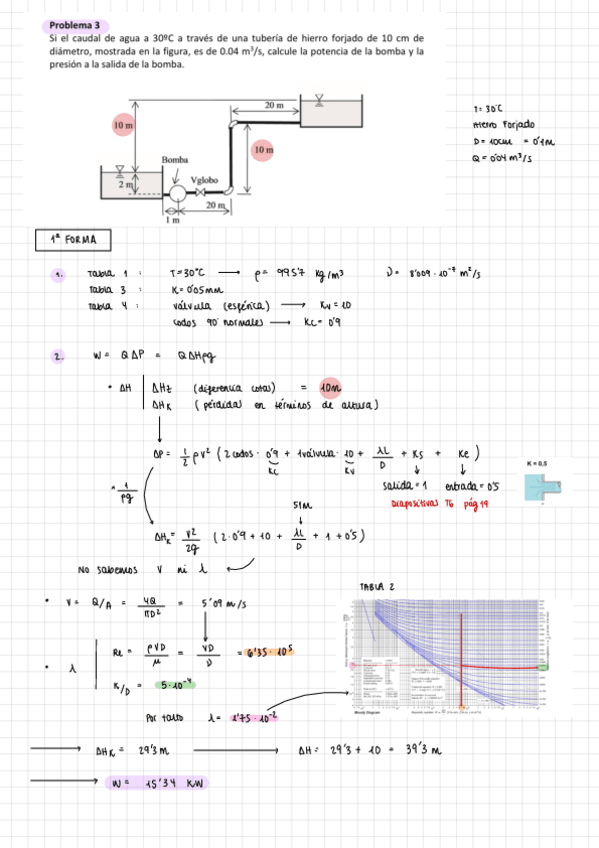 Problema 3
Si el caudal de agua a 30ºC a través de una tubería de hierro forjado de 10 cm de
diámetro, mostrada en la figura, es de 0.04 m³/s, calcule la potencia de la bomba y la
presión a la salida de la bomba.
20 m
10 m
10 m
Bomba
Vglobo
2 m
20 m
1 m
T = 30°C
Hierro Forjado
D = 10cm = 0'1m
Q = 0'04 m³/s
1ª FORMA
1. Tabla 1 : T=30°C → ρ = 995'7 kg/m³ ν = 8'009 · 10⁻⁷ m²/s
Tabla 3 : K = 0'05mm
Tabla 4 : válvula (esférica) → Kv = 10
codos 90° normales → Kc = 0'9
2. W = QΔP = QΔHρg
• ΔH ΔHz (diferencia cotas) = 10m
ΔHk (pérdidas en términos de altura)
ΔP = 1/2 ρv² (2codos · 0'9 + 1válvula · 10 + λL/D + Ks + Ke)
Kc Kv
salida = 1 entrada = 0'5
Diapositivas T6 pág 19
K = 0,5
· 1/ρg
51m
ΔHk = v²/2g (2·0'9 + 10 + λL/D + 1 + 0'5)
No sabemos v ni λ
• v = Q/A = 4Q/πD² = 5'09 m/s
TABLA 2
• λ Re = ρVD/μ = VD/ν = 6'35 · 10⁵
K/D = 5·10⁻⁴
Por tanto λ = 1'75 · 10⁻²
Moody Diagram
→ ΔHk = 29'3 m → ΔH = 29'3 + 10 = 39'3 m
→ W = 15'34 KW